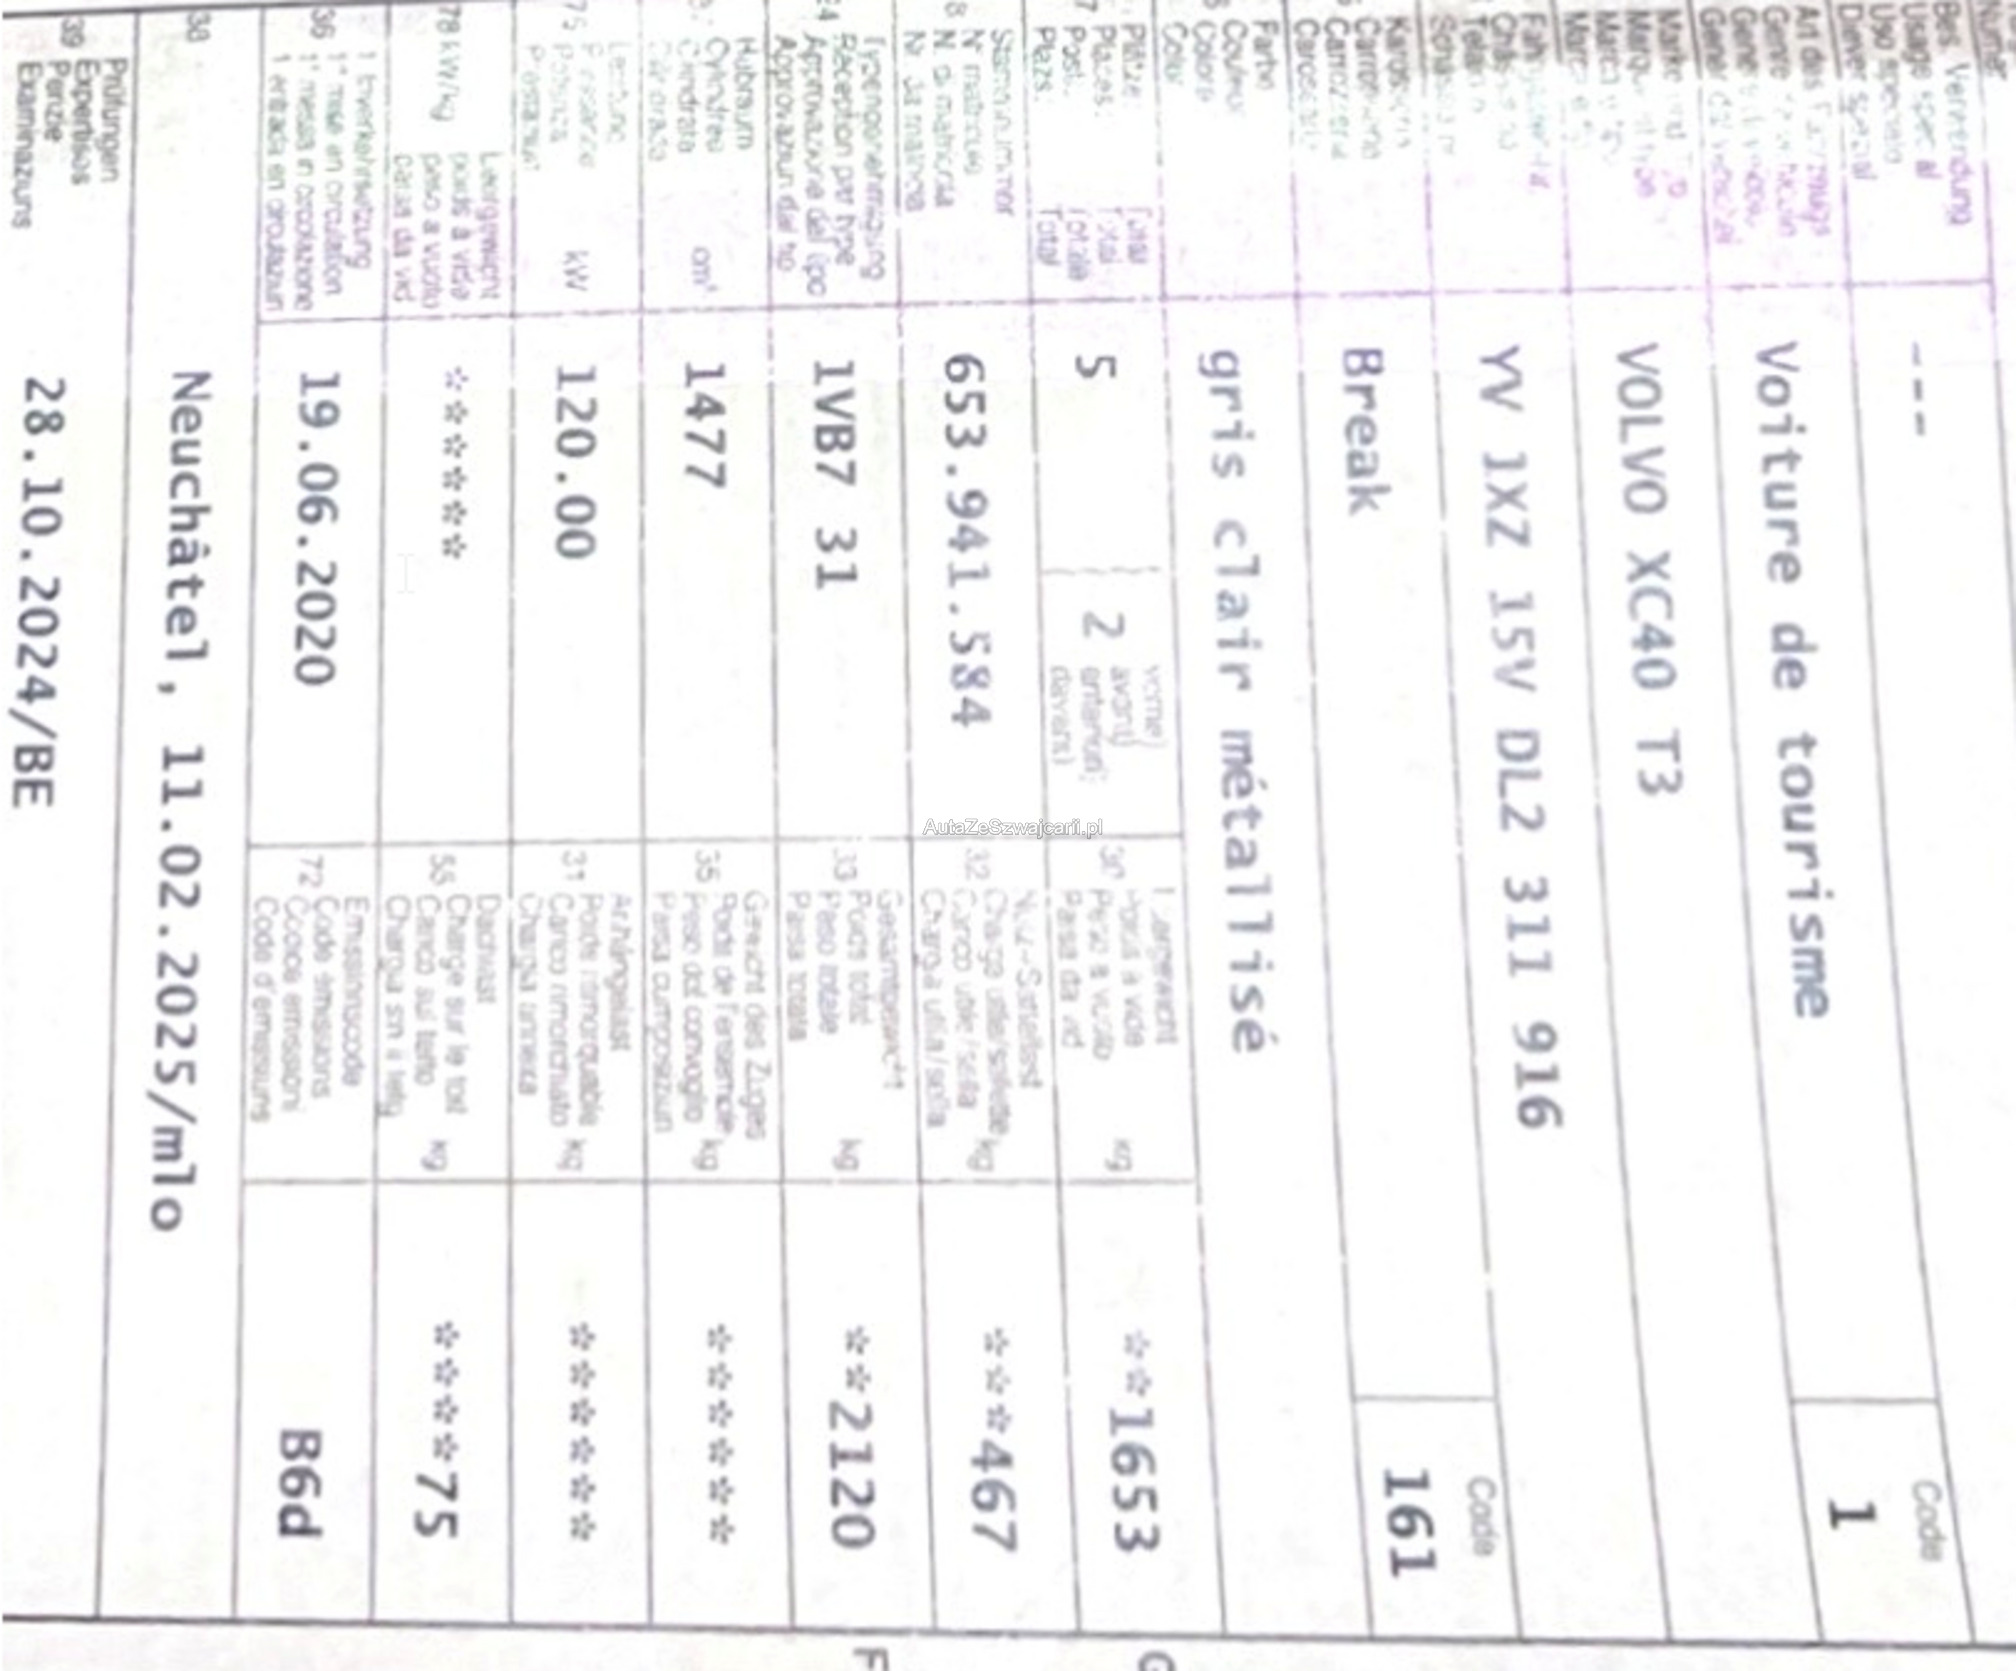 Bes. Verwendung
Usage spécial
Uso speciale
Diever spezial
---
Code
Voiture de tourisme
1
VOLVO XC40 T3
YV 1XZ 15V DL2 311 916
Code
Break
161
Farbe
Couleur
Colore
Color
gris clair métallisé
Plätze:
Places:
Posti:
Plazs:
Total
Total
Totale
Total
5
2
vorne)
avant)
anteriori)
davant)
30
Leergewicht
Poids à vide
Peso a vuoto
Paisa da vid
kg
**1653
Stammnummer
N° matricule
N. di matricola
Nr. da matricla
653.941.584
32
Nutz-/Sattellast
Charge utile/sellette
Carico utile/sella
Chargia utila/sella
kg
***467
Typengenehmigung
Réception par type
Approvazione del tipo
Approvaziun dal tip
1VB7 31
33
Gesamtgewicht
Poids total
Peso totale
Paisa totala
kg
**2120
Hubraum
Cylindrée
Cilindrata
cm³
1477
35
Gewicht des Zuges
Poids de l'ensemble
Peso del convoglio
Paisa cumposiziun
kg
******
Leistung
Puissance
Potenza
Prestaziun
kW
120.00
31
Anhängelast
Poids remorquable
Carico rimorchiato
Chargia annexa
kg
******
78 kW/kg
Leergewicht
poids à vide
peso a vuoto
paisa da vid
******
55
Dachlast
Charge sur le toit
Carico sul tetto
Chargia sin il tetg
kg
****75
36
1. Inverkehrsetzung
1re mise en circulation
1a messa in circolazione
1. entrada en circulaziun
19.06.2020
72
Emissionscode
Code émissions
Codice emissioni
Code d'emissiuns
B6d
38
Neuchâtel, 11.02.2025/mlo
39
Prüfungen
Expertises
Perizie
Examinaziuns
28.10.2024/BE
AutaZeSzwajcarii.pl
F
G